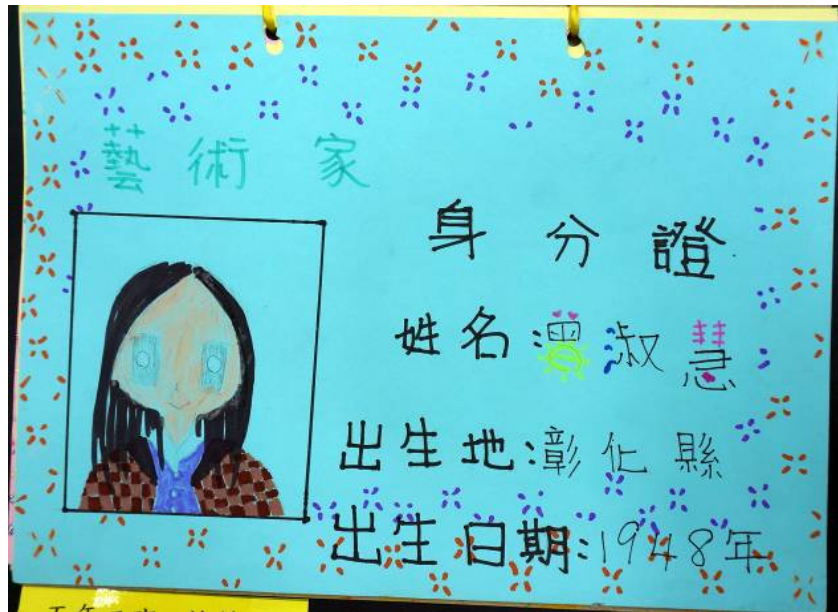 藝術家
身分證
姓名:淑慧
出生地:彰化縣
出生日期:1948年